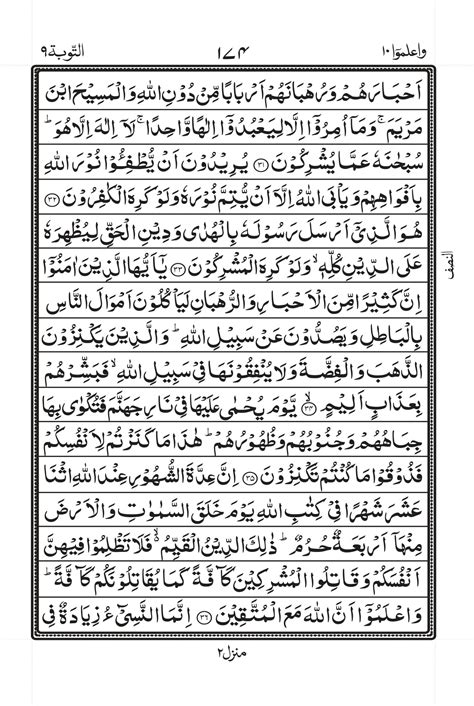 واعلموا ١٠
١٧٤
التوبة ٩
اَحْبَارَهُمْ وَرُهْبَانَهُمْ اَرْبَابًا مِّنْ دُوْنِ اللّٰهِ وَالْمَسِيْحَ ابْنَ
مَرْيَمَ ۚ وَمَاۤ اُمِرُوْۤا اِلَّا لِيَعْبُدُوْۤا اِلٰهًا وَّاحِدًا ۚ لَاۤ اِلٰهَ اِلَّا هُوَ ؕ
سُبْحٰنَهٗ عَمَّا يُشْرِكُوْنَ ﴿۳۱﴾ يُرِيْدُوْنَ اَنْ يُّطْفِـُٔوْا نُوْرَ اللّٰهِ
بِاَفْوَاهِهِمْ وَيَاْبَى اللّٰهُ اِلَّاۤ اَنْ يُّتِمَّ نُوْرَهٗ وَلَوْ كَرِهَ الْكٰفِرُوْنَ ﴿۳۲﴾
هُوَ الَّذِيْۤ اَرْسَلَ رَسُوْلَهٗ بِالْهُدٰى وَدِيْنِ الْحَقِّ لِيُظْهِرَهٗ
عَلَى الدِّيْنِ كُلِّهٖ ۙ وَلَوْ كَرِهَ الْمُشْرِكُوْنَ ﴿۳۳﴾ يٰۤاَيُّهَا الَّذِيْنَ اٰمَنُوْۤا
النصف
اِنَّ كَثِيْرًا مِّنَ الْاَحْبَارِ وَالرُّهْبَانِ لَيَاْكُلُوْنَ اَمْوَالَ النَّاسِ
بِالْبَاطِلِ وَيَصُدُّوْنَ عَنْ سَبِيْلِ اللّٰهِ ؕ وَالَّذِيْنَ يَكْنِزُوْنَ
الذَّهَبَ وَالْفِضَّةَ وَلَا يُنْفِقُوْنَهَا فِيْ سَبِيْلِ اللّٰهِ ۙ فَبَشِّرْهُمْ
بِعَذَابٍ اَلِيْمٍ ﴿۳۴﴾ يَّوْمَ يُحْمٰى عَلَيْهَا فِيْ نَارِ جَهَنَّمَ فَتُكْوٰى بِهَا
جِبَاهُهُمْ وَجُنُوْبُهُمْ وَظُهُوْرُهُمْ ؕ هٰذَا مَا كَنَزْتُمْ لِاَنْفُسِكُمْ
فَذُوْقُوْا مَا كُنْتُمْ تَكْنِزُوْنَ ﴿۳۵﴾ اِنَّ عِدَّةَ الشُّهُوْرِ عِنْدَ اللّٰهِ اثْنَا
عَشَرَ شَهْرًا فِيْ كِتٰبِ اللّٰهِ يَوْمَ خَلَقَ السَّمٰوٰتِ وَالْاَرْضَ
مِنْهَاۤ اَرْبَعَةٌ حُرُمٌ ؕ ذٰلِكَ الدِّيْنُ الْقَيِّمُ ۙ فَلَا تَظْلِمُوْا فِيْهِنَّ
اَنْفُسَكُمْ وَقَاتِلُوا الْمُشْرِكِيْنَ كَآفَّةً كَمَا يُقَاتِلُوْنَكُمْ كَآفَّةً ؕ
وَاعْلَمُوْۤا اَنَّ اللّٰهَ مَعَ الْمُتَّقِيْنَ ﴿۳۶﴾ اِنَّمَا النَّسِيْٓءُ زِيَادَةٌ فِي
منزل ٢